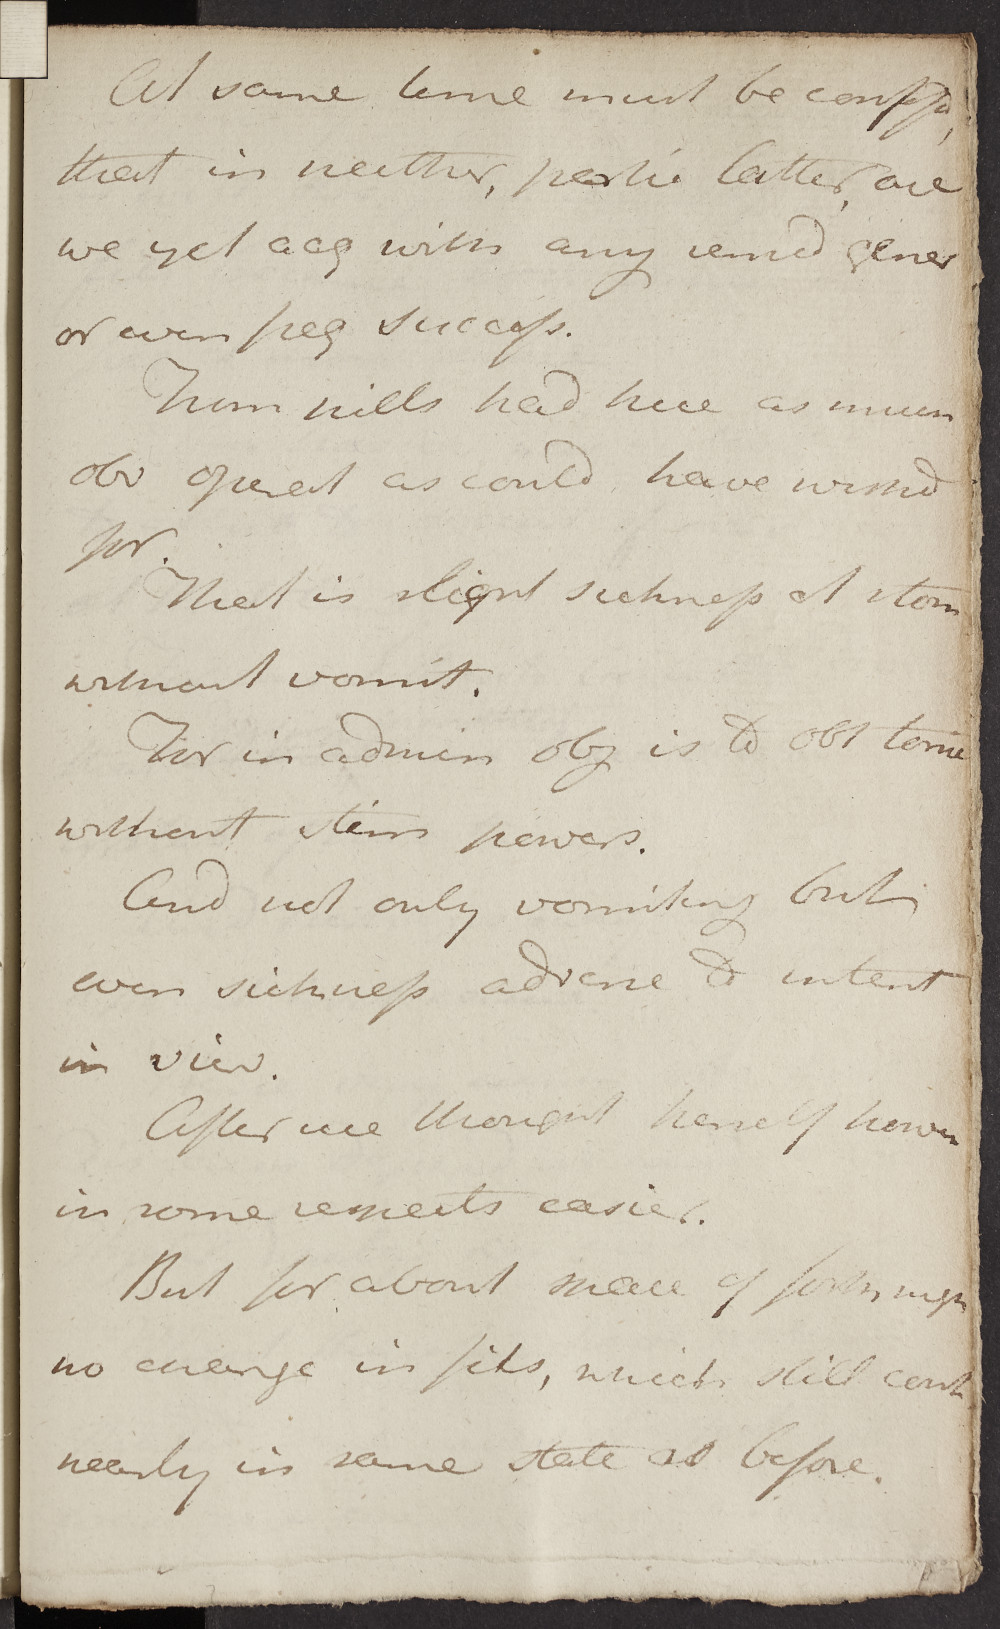 At same time must be confess'd,
that in neither, partic latter, are
we yet acq with any remed gener
or even freq success.
From pills had here as much
obv operat as could have wished
for.
That is slight sickness at stom
without vomit.
For in admin obj is to obt tonic
without stim powers.
And not only vomiting but
even sickness adverse to intent
in view.
After use thought herself howev
in some respects easier.
But for about space of fortnight
no change in fits, which still cont
nearly in same state as before.